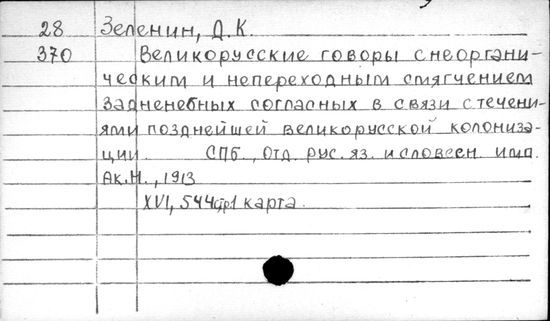 28 Зеленин, Д.К.
370 Великорусские говоры с неоргани-
ческим и непереходным смягчением
задненебных согласных в связи с течени-
ями позднейшей великорусской колониза-
ции. СПб., Отд. рус. яз. и словесн. имп.
Ак.Н., 1913
XVI, 544стр 1 карта.